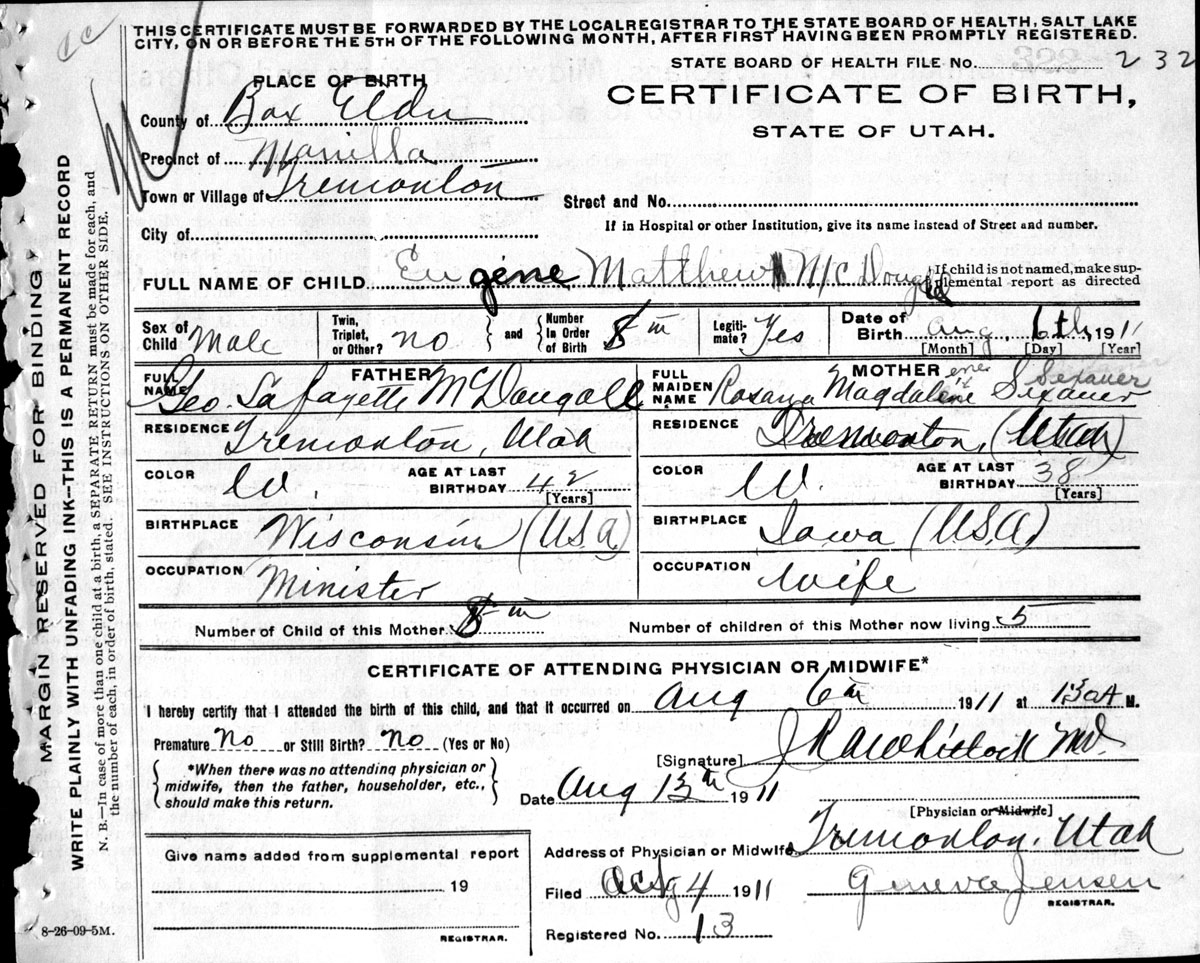 THIS CERTIFICATE MUST BE FORWARDED BY THE LOCAL REGISTRAR TO THE STATE BOARD OF HEALTH, SALT LAKE
CITY, ON OR BEFORE THE 5TH OF THE FOLLOWING MONTH, AFTER FIRST HAVING BEEN PROMPTLY REGISTERED.
STATE BOARD OF HEALTH FILE No. 232
PLACE OF BIRTH
CERTIFICATE OF BIRTH,
STATE OF UTAH.
County of Box Elder
Precinct of Manilla
Town or Village of Tremonton
Street and No.
City of
If in Hospital or other Institution, give its name instead of Street and number.
FULL NAME OF CHILD Eugene Matthew McDougall
If child is not named, make supplemental report as directed
Sex of Child Male
Twin, Triplet, or Other? no
and
Number in Order of Birth
Legitimate? Yes
Date of Birth Aug 6th, 1911
[Month] [Day] [Year]
FATHER
FULL NAME Geo. Lafayette McDougall
RESIDENCE Tremonton, Utah
COLOR W.
AGE AT LAST BIRTHDAY 42
[Years]
BIRTHPLACE Wisconsin (U.S.A.)
OCCUPATION Minister
MOTHER
FULL MAIDEN NAME Rosana Magdalene Sexauer
Sexauer
RESIDENCE Tremonton, (Utah)
COLOR W.
AGE AT LAST BIRTHDAY 38
[Years]
BIRTHPLACE Iowa (U.S.A)
OCCUPATION wife
Number of Child of this Mother
Number of children of this Mother now living 5
CERTIFICATE OF ATTENDING PHYSICIAN OR MIDWIFE*
I hereby certify that I attended the birth of this child, and that it occurred on Aug 6th 1911 at M.
Premature No or Still Birth? No (Yes or No)
*When there was no attending physician or
midwife, then the father, householder, etc.,
should make this return.
[Signature] Whitlock MD.
Date Aug 13th 1911
[Physician or Midwife]
Address of Physician or Midwife Tremonton, Utah
Give name added from supplemental report
19
REGISTRAR.
Filed 4 1911
Geneva Jensen
REGISTRAR.
Registered No. 13
8-26-09-5M.
MARGIN RESERVED FOR BINDING
WRITE PLAINLY WITH UNFADING INK--THIS IS A PERMANENT RECORD
N. B.--In case of more than one child at a birth, a SEPARATE RETURN must be made for each, and
the number of each, in order of birth, stated. SEE INSTRUCTIONS ON OTHER SIDE.